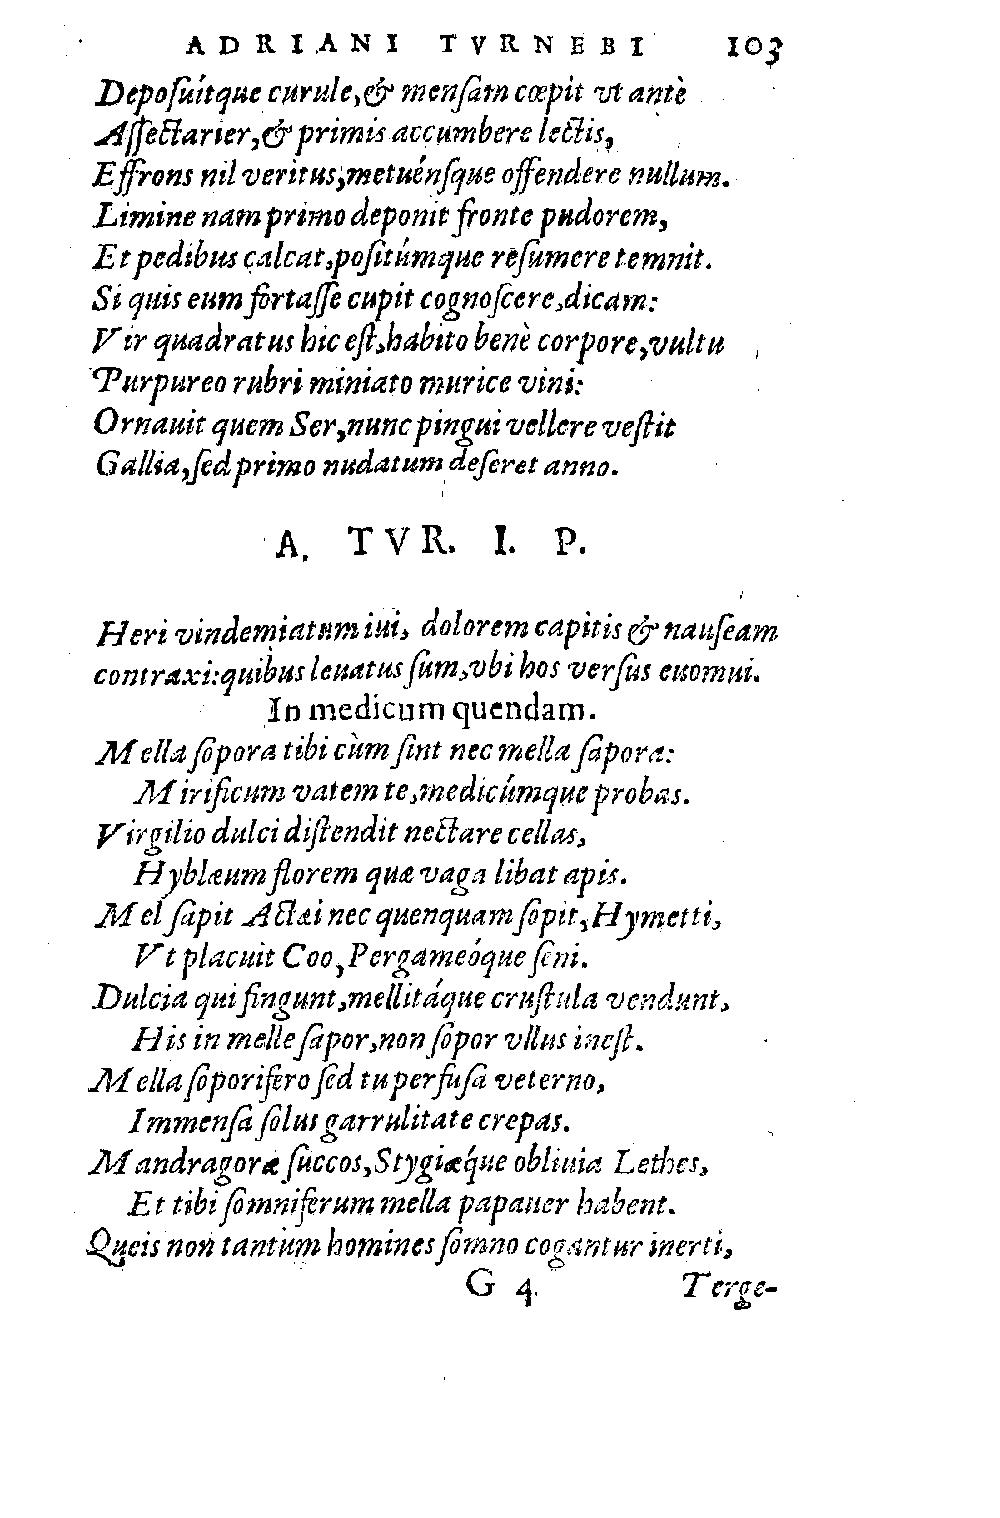 ADRIANI TVRNEBI 103
Deposuítque curule,& mensam cœpit vt antè
Assectarier,& primis accumbere lectis,
Effrons nil veritus,metuénsque offendere nullum.
Limine nam primo deponit fronte pudorem,
Et pedibus calcat,positúmque resumere temnit.
Si quis eum fortasse cupit cognoscere,dicam:
Vir quadratus hic est,habito benè corpore,vultu
Purpureo rubri miniato murice vini:
Ornauit quem Ser,nunc pingui vellere vestit
Gallia,sed primo nudatum deseret anno.
A. TVR. I. P.
Heri vindemiatum iui, dolorem capitis & nauseam
contraxi:quibus leuatus sum,vbi hos versus euomui.
In medicum quendam.
Mella sopora tibi cùm sint nec mella sapora:
Mirificum vatem te,medicúmque probas.
Virgilio dulci distendit nectare cellas,
Hyblæum florem quæ vaga libat apis.
Mel sapit Actæi nec quenquam sopit,Hymetti,
Vt placuit Coo,Pergameóque seni.
Dulcia qui fingunt,mellitáque crustula vendunt,
His in melle sapor,non sopor vllus inest.
Mella soporifero sed tu perfusa veterno,
Immensa solus garrulitate crepas.
Mandragoræ succos,Stygiæque obliuia Lethes,
Et tibi somniferum mella papauer habent.
Queis non tantùm homines somno cogantur inerti,
G 4. Terge-